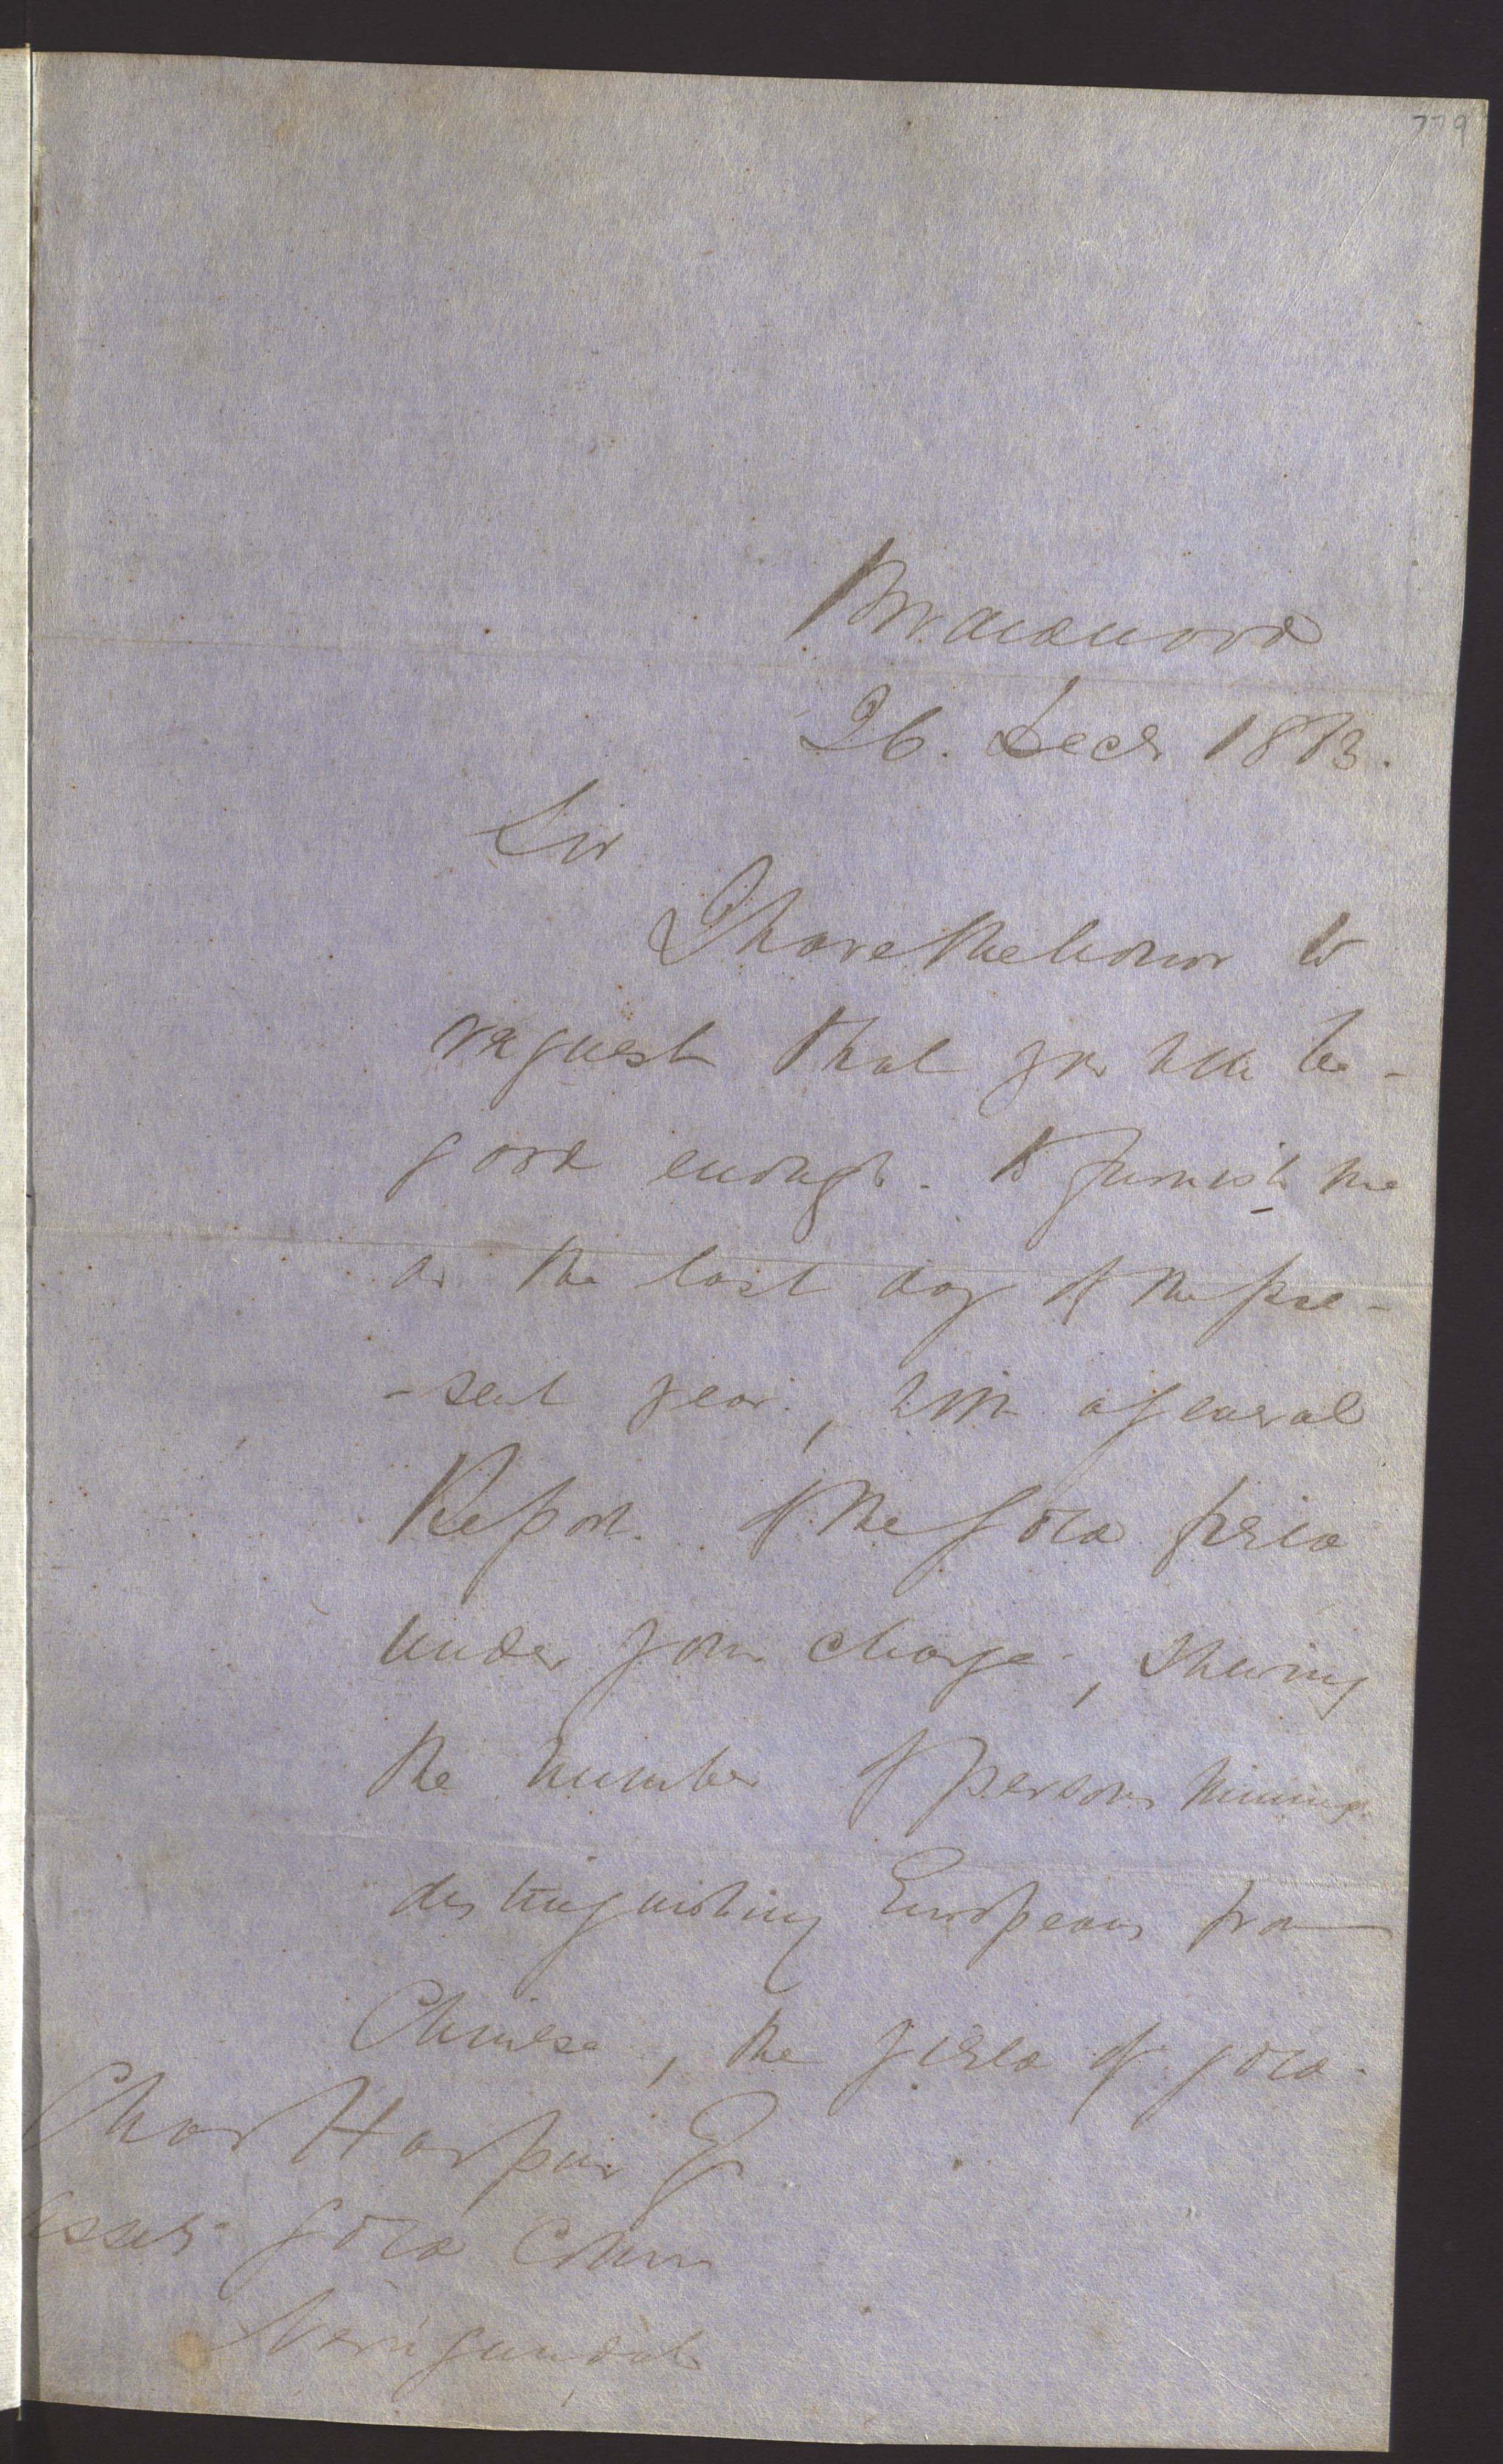 779
Braidwood
26. Decr 1863.
Sir
I have the honor to
request that you will be
good enough to furnish me
on the last day of the pre-
-sent year, with a general
Report of the Gold field
under your charge, shewing
the number of persons mining
distinguishing Europeans from
Chinese, the yield of gold
Chas Harpur Esq
Asst Gold Commr
Nerrigundah